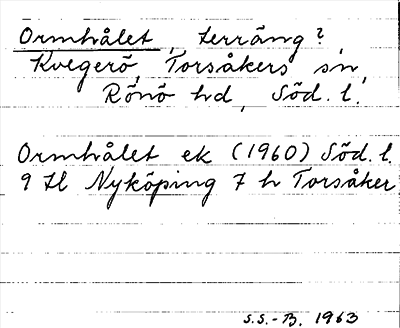 Ormhålet, terräng?,
Kvegerö, Torsåkers sn,
Rönö hd, Söd. l.
Ormhålet ek (1960) Söd. l.
9 H Nyköping 7 h Torsåker
S.S.-B. 1963